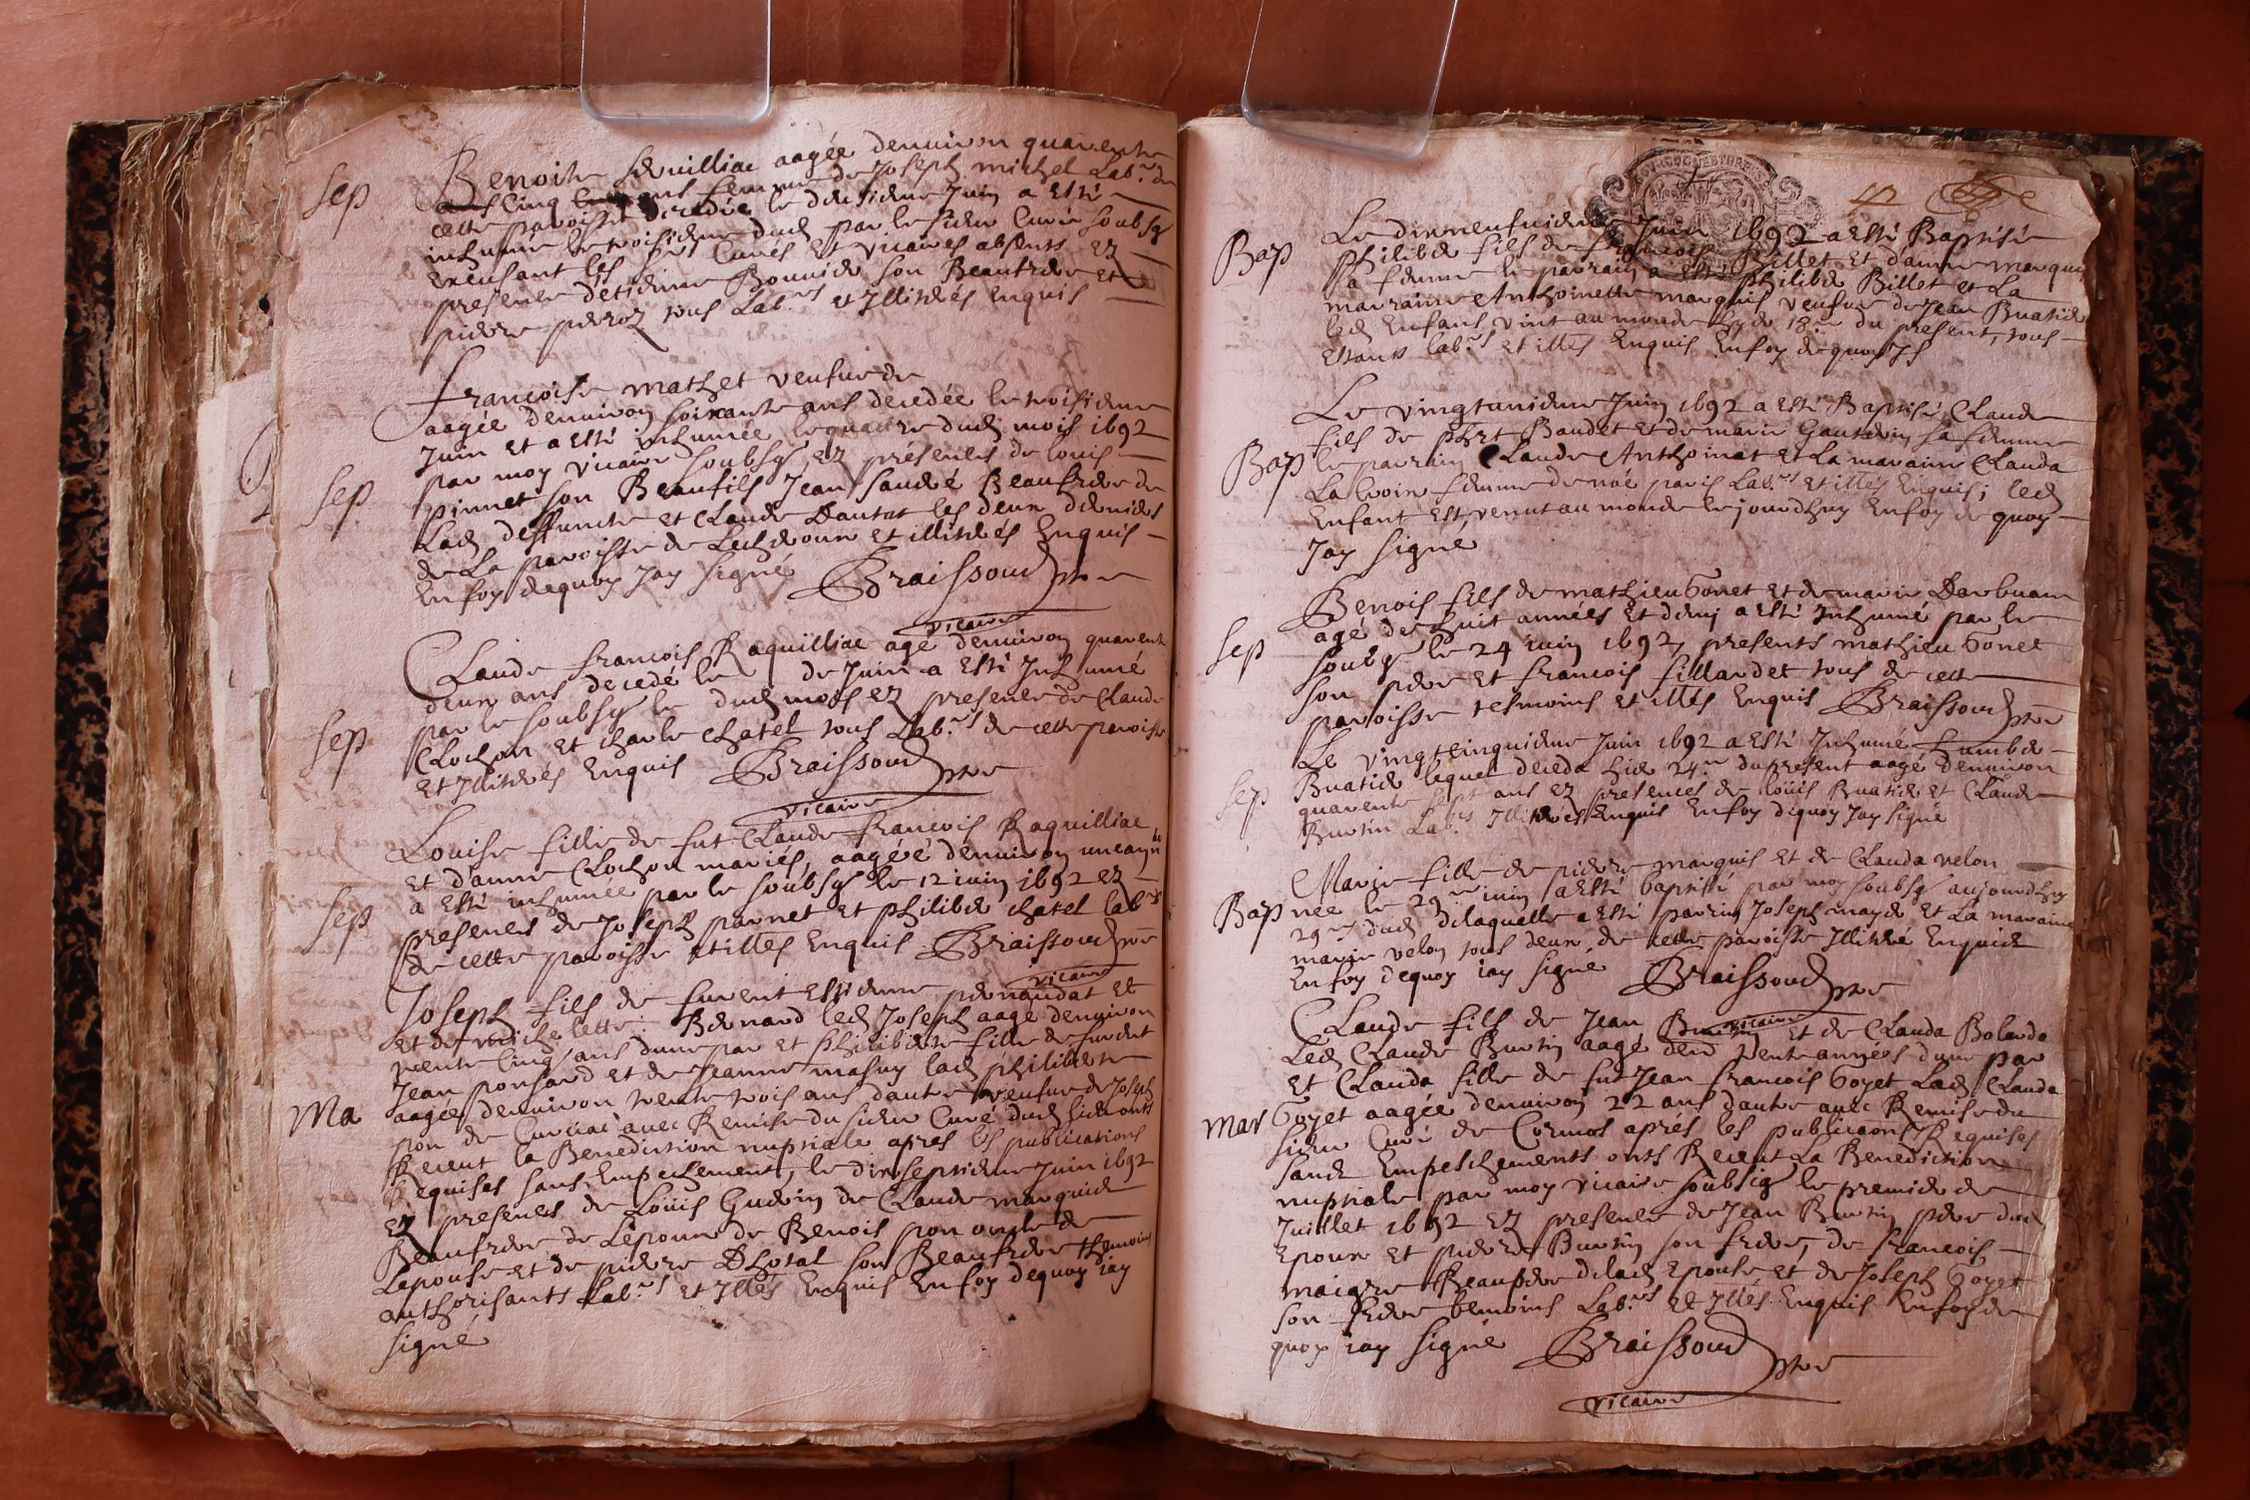 Sep
Benoite aagée denuiron quarente
Cinq ans femme de Joseph michel Lab.rs de
cette paroisse decedée le deusieme Juin a Esté
inhumée le troisieme dud par le sieur Curé soubsg
les Curés Et vicaires absents Ez
presence d'etienne Bouuier son Beaufrere et
pierre perroz tous Lab.rs et Illiterés Enquis
francoise mathet veufue de
aagée denuiron soixante ans decedée le troisieme
Juin et a Esté inhumée le quatre dud mois 1692
par moy vicaire soubsg, Ez présences de louis
Sep
pinnet son Beaufils Jean Beaufrere de
Lad deffuncte et Claude Dautat les deux derniers
de La paroisse de et illiterés Enquis
En foy dequoy Jay signé Braissoud ptre
vicaire
Claude francois Raquilliac agé denuiron quarente
deux ans decedé le de Juin a Esté Inhumé
par le soubsg le dud mois Ez presence de Claude
Sep
Clochon et charle chatel tous Lab.rs de cette paroisse
et Illiterés Enquis Braissoud ptre
vicaire
Louise fille de fut Claude francois Raquilliac
et d'anne Clochon mariés, aagéé denuiron une
a Esté inhumée par le soubsg le 12 iuin 1692 Ez
Sep
presences de Joseph parnet et philiber chatel lab.rs
de cette paroisse et illés Enquis Braissoud ptre
vicaire
Joseph fils de furent Estienne et
et de michelette Bernard led Joseph aagé denuiron
trente Cinq ans dune par et philiberte fille de furent
Jean ponsard et de Jeanne lad philiberte
Ma
aagée denuiron trente trois ans dautre veufue de Joseph
pon de Curciac auec Remise du sieur Curé dud
Receut la Benediction nuptiale apres les publications
Requises sans Empechement, le dixseptieme Juin 1692
Ez presences de Loüis Guerin de Claude marquis
Beaufrere de Lepoux de Benois pon oncle de
Lepouse et de pierre son Beaufrere
authorisants Lab.rs et Illés Enquis En foy dequoy iay
signé
Bap
Le dixneufuieme Juin 1692 a Esté Baptisé
philiber fils de francois Billet et danne marquis
sa femme le parrain a Esté philiber Billet et La
marraine Anthoinette marquis veufue de Jean Buatier
led Enfans vint au monde hyer 18.me du present, tous
Estants lab.rs et illés Enquis En foy de quoy
Le vingtunieme Juin 1692 a Esté Baptisé Claude
fils de Baudet et de marie sa femme
Bap
le parrain Claude Anthoinat et La maraine Clauda
La croix femme de paris Lab.rs et illés Enquis; led
Enfant Est venut au monde le jourdhuy En foy de quoy
Jay signé
Benois fils de mathieu Gonet et de marie
agé de huit années et demi a Esté Inhumé par le
Sep
soubsg le 24 iuin 1692, presents mathieu Gonet
son pere et francois fillardet tous de cette
paroisse tesmoins et illés Enquis Braissoud ptre
Le vingtcinquieme Juin 1692 a Esté Inhumé humber
Buatier lequel deceda hier 24.me du present aagé denuiron
Sep
quarente sept ans Ez presences de loüis Buatier et Claude
Burtin Lab.rs Illiterés Enquis En foy dequoy Jay signé
Marie fille de pierre marquis et de Clauda velon
Bap
née le 29.me iuin a Esté baptisé par moy soubsg aujourdhuy
29.me dud delaquelle a Esté parrin Joseph mayer et La maraine
marie velon tous deux de cette paroisse Illiteré Enquis
En foy dequoy iay signé Braissoud ptre
vicaire
Claude fils de Jean Burtin et de Clauda Bolarda
Led Claude Burtin aagé trente années dune par
et Clauda fille de fut Jean francois Goyet Lad Clauda
Mar
Goyet aagée denuiron 22 ans dautre auec Remise du
sieur Curé de Cormos aprés les publicaons Requises
sans Empeschements onts Receut La Benediction
nuptiale par moy vicaire soubsig le premier de
Juillet 1692 Ez presence de Jean Burtin pere dud
Epoux et pierre Burtin son frere, de francois
maigre Beaupere delad Epouse et de Joseph Goyet
son frere temoins Lab.rs et Illés Enquis En foy de
quoy iay signé Braissoud ptre
vicaire